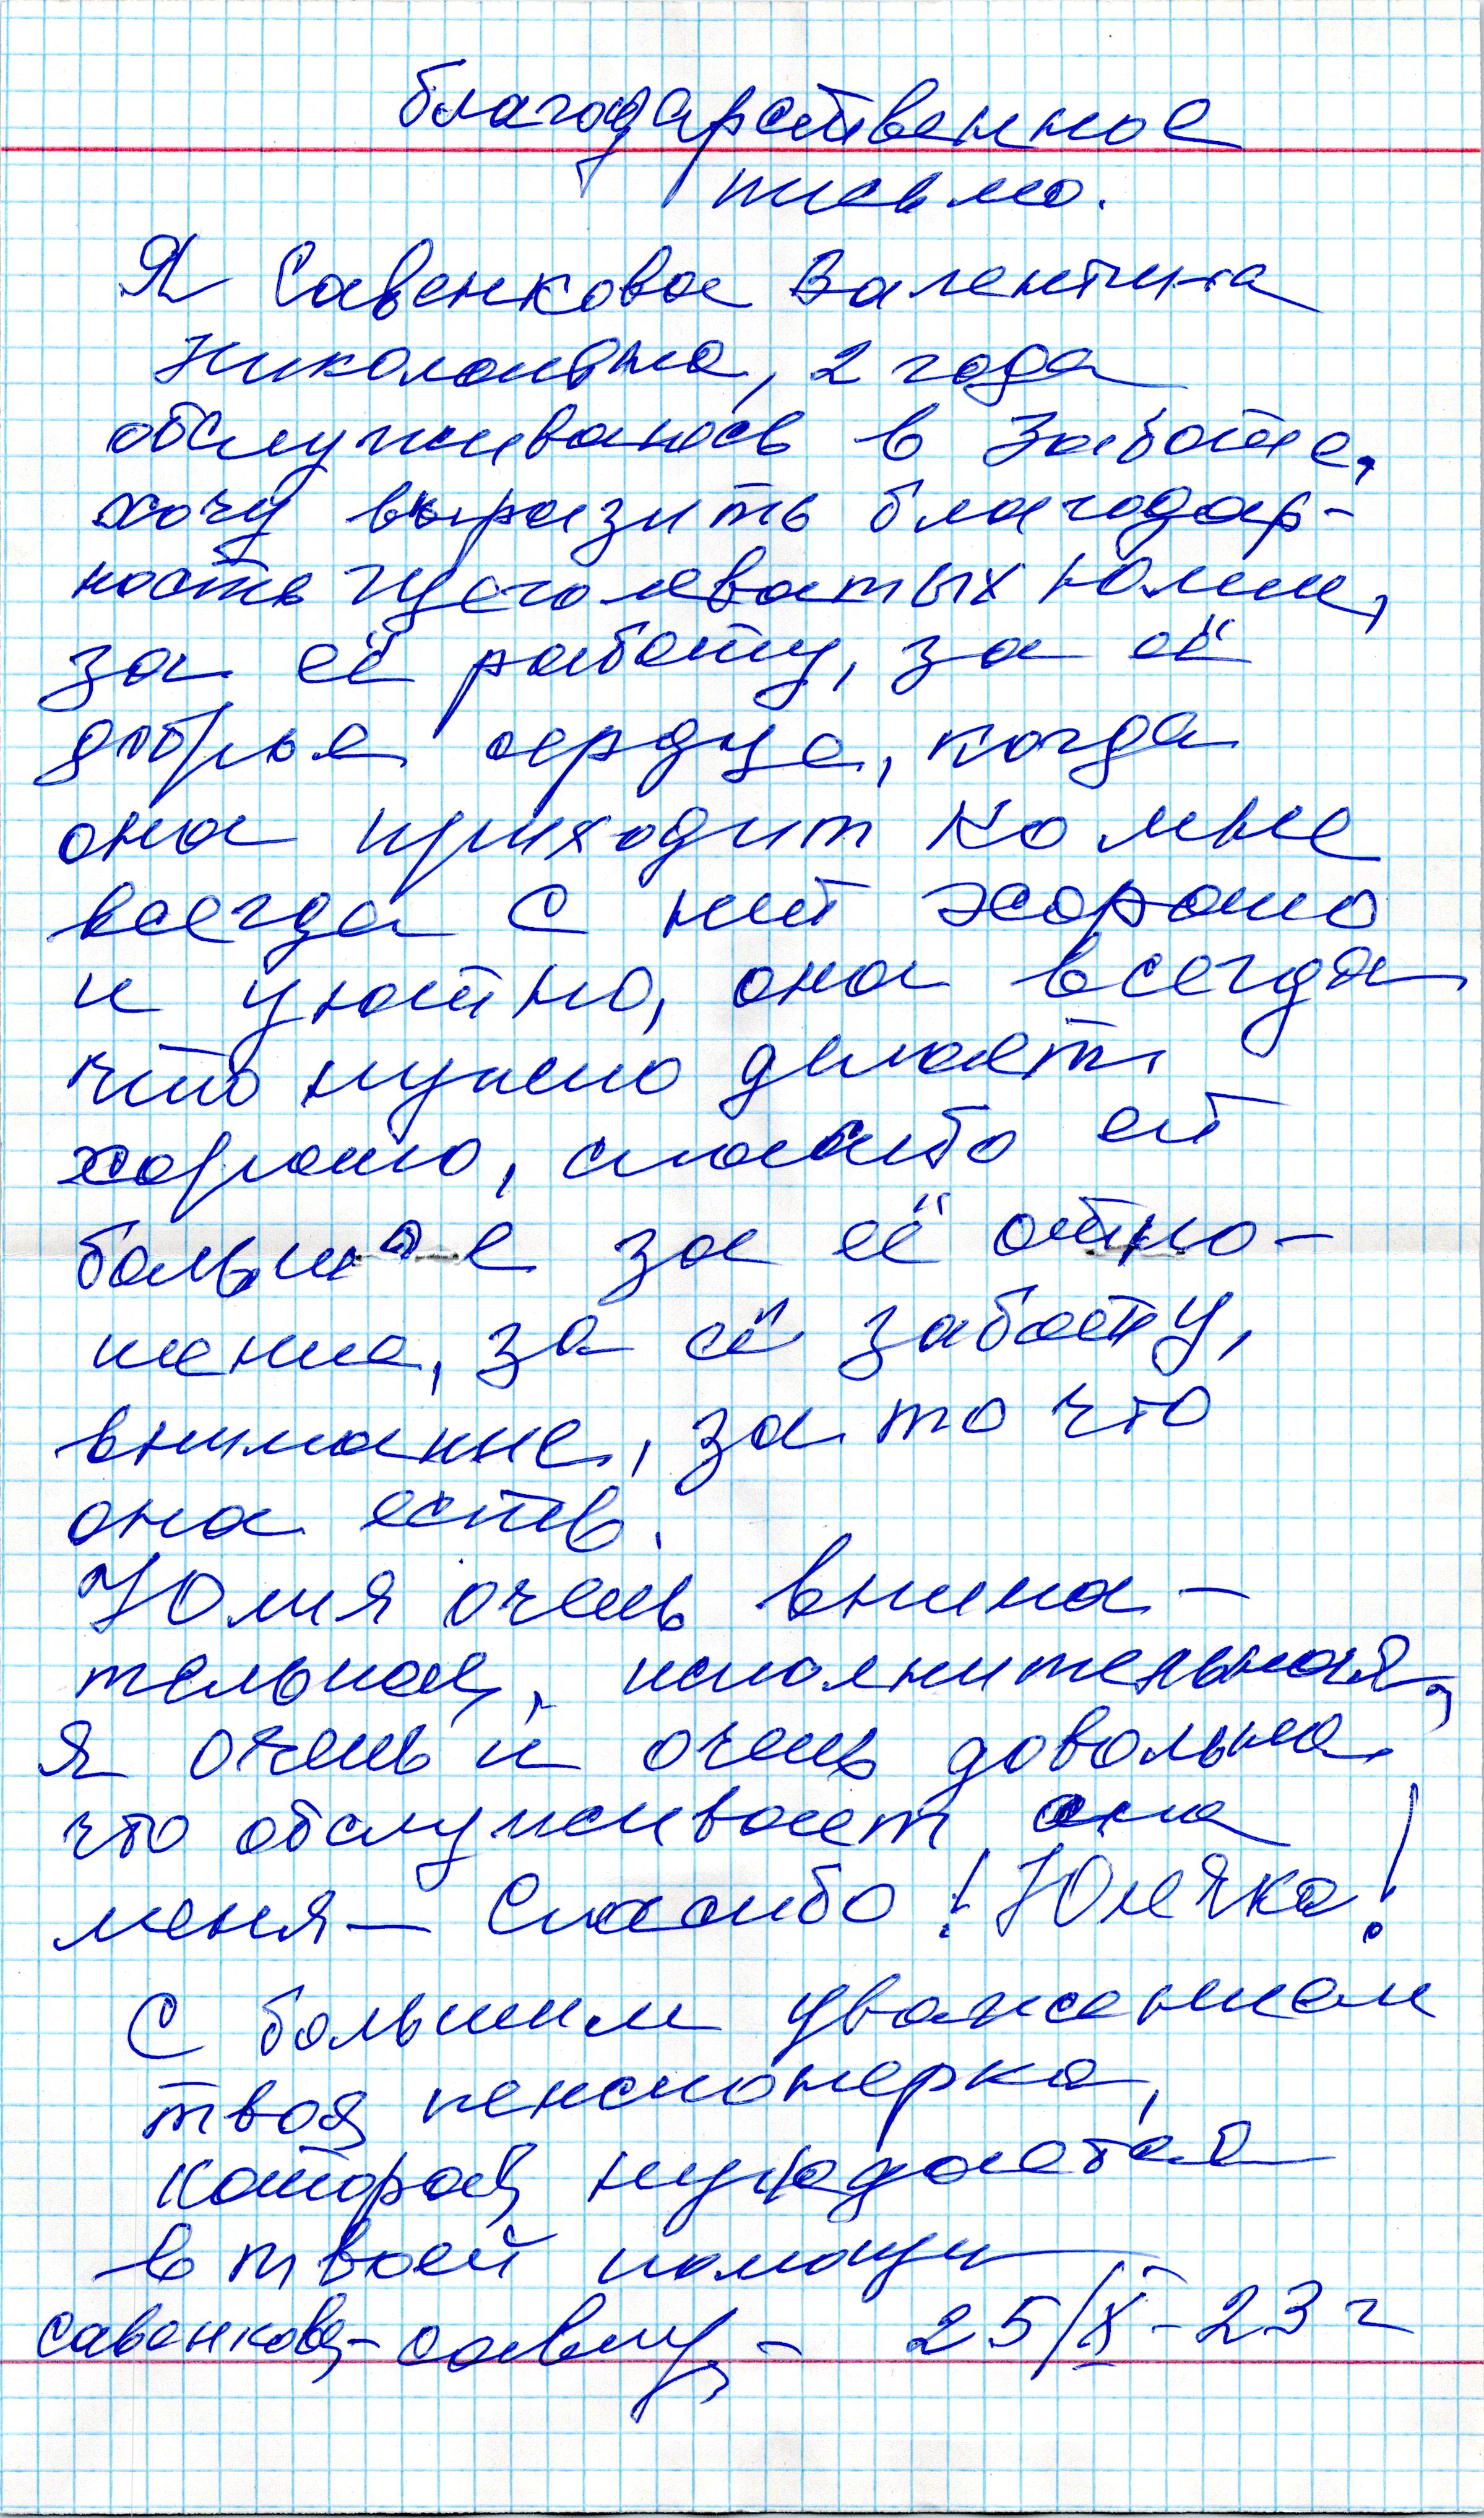 благодарственное
письмо.
Я Савенкова Валентина
Николаивна, 2 года
обслуживаюсь в Заботе,
хочу выразить благодар-
ность Щеголеватых Юлии,
за её работу, за её
добрье сердце, когда
она приходит ко мне
всегда с ней хорошо
и уютно, она всегда
что нужно делает
хорошо, спасибо ей
большое за её отно-
шение, за её заботу,
внимание, за то что
она есть.
Юлия очень внима-
тельная, исполнительная,
я очень и очень довольна
что обслуживает она
меня — Спасибо! Юлечка!
С большим уважением
твоя пенсионерка,
которой нуждается
в твоей помощи
Савенкова - 25/X - 23 г